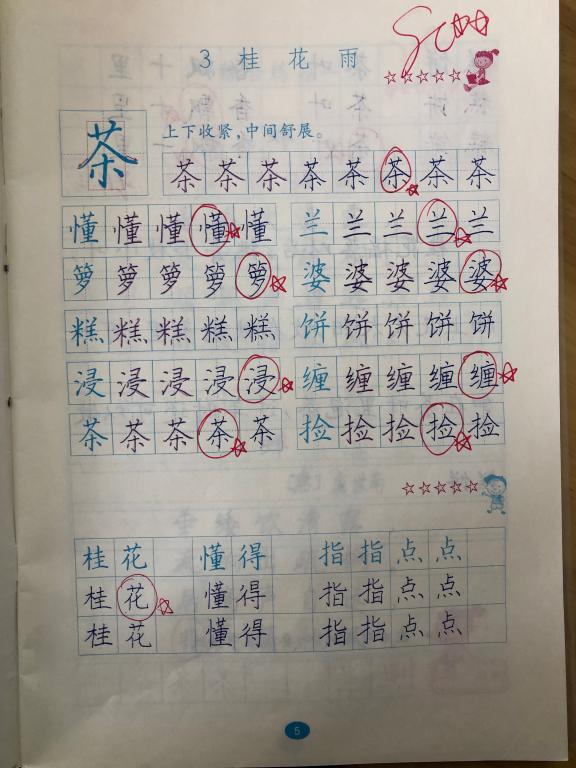 3 桂花雨
茶 上下收紧，中间舒展。
茶 茶 茶 茶 茶 茶 茶 茶
懂 懂 懂 懂 懂 兰 兰 兰 兰 兰
箩 箩 箩 箩 箩 婆 婆 婆 婆 婆
糕 糕 糕 糕 糕 饼 饼 饼 饼 饼
浸 浸 浸 浸 浸 缠 缠 缠 缠 缠
茶 茶 茶 茶 茶 捡 捡 捡 捡 捡
桂花 懂得 指指点点
桂花 懂得 指指点点
桂花 懂得 指指点点
5